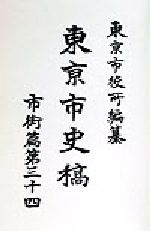 東京市役所編纂
東京市史稿
市街篇第三十四